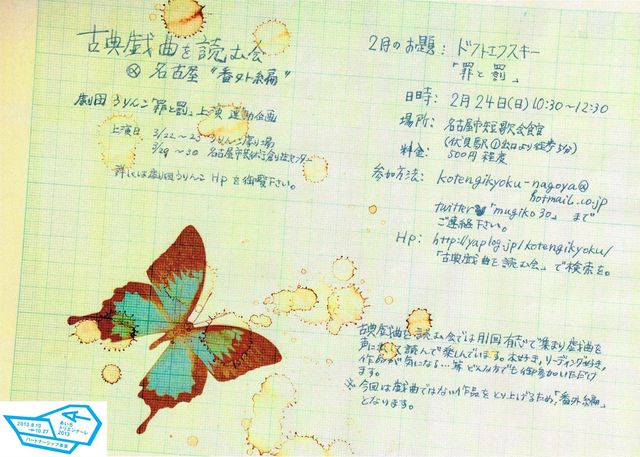 古典戯曲を読む会
@ 名古屋 "番外編"
劇団 うりんこ「罪と罰」上演 連動企画
上演日 3/22~25 うりんこ劇場
3/29~30 名古屋市芸術創造センター
詳しくは劇団うりんこ Hp を御覧下さい。
2月のお題: ドフトエフスキー
「罪と罰」
日時: 2月24日(日)10:30~12:30
場所: 名古屋市短歌会館
(伏見駅①出口より徒歩5分)
料金: 500円程度
参加方法: kotengikyoku-nagoya@
hotmail.co.jp
twitter「mugiko30」まで
ご連絡下さい。
Hp: http://yaplog.jp/kotengikyoku/
「古典戯曲を読む会」で検索を。
古典戯曲を読む会では月1回有志で集まり戯曲を
声に出して読んで楽しんでいます。本好き,リーディング好き,
作品が気になる…等 どんな方でも御参加いただけ
ます。
※ 今回は戯曲ではない作品をとり上げるため,「番外編」
となります。
2013.8.10
→10.27
あいち
トリエンナーレ
2013
パートナーシップ事業